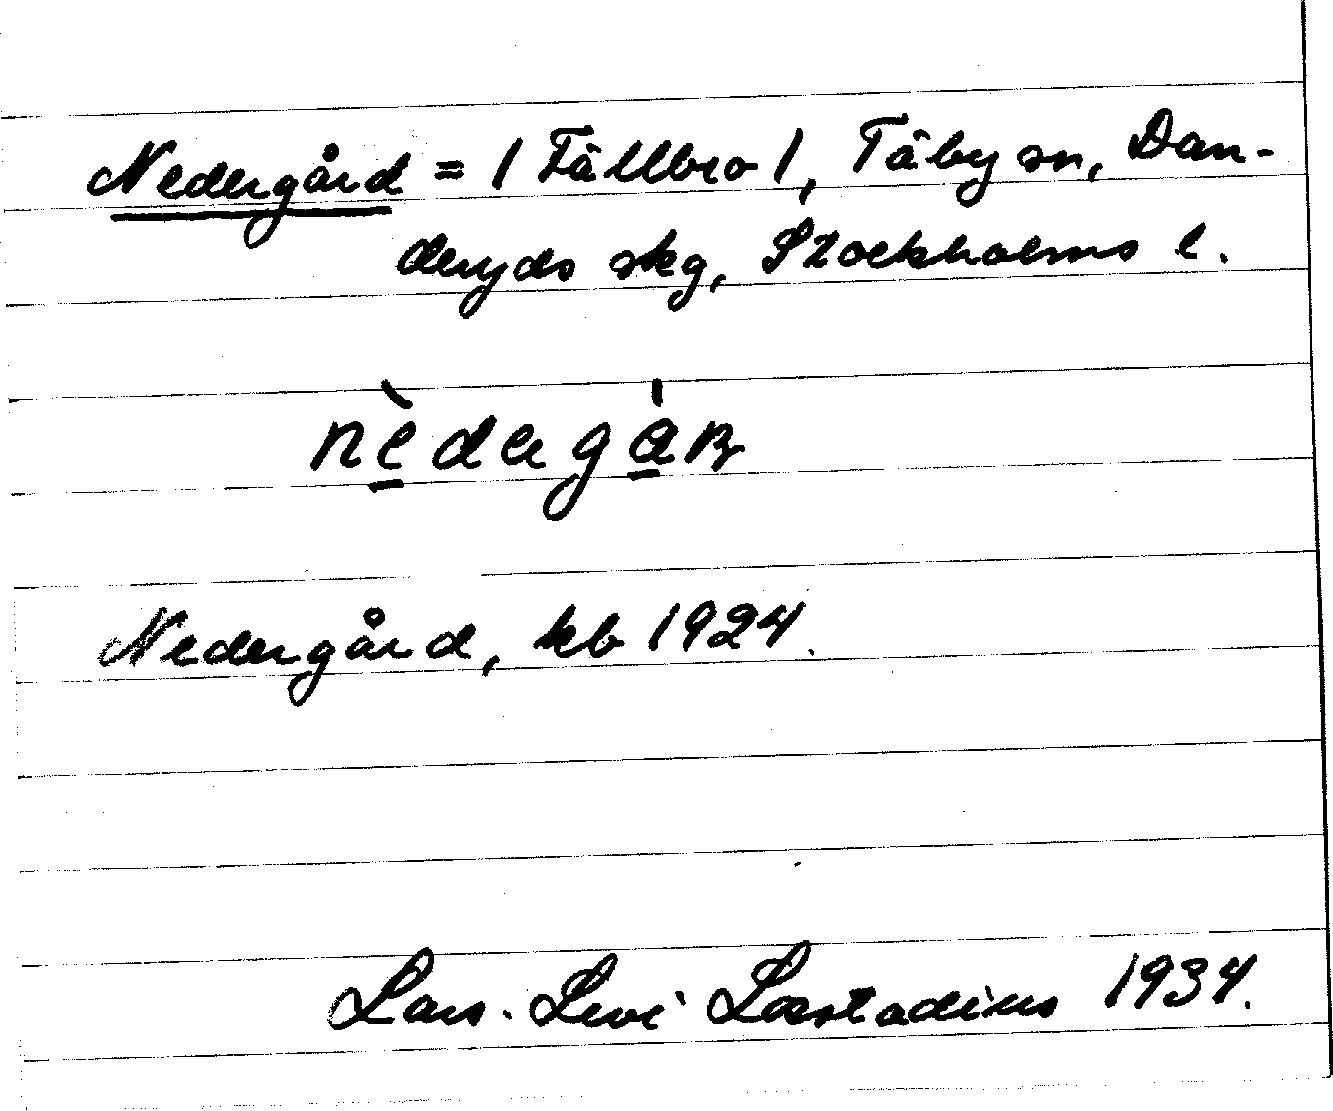 Nedergård = / Fällbro /, Täby sn, Dan-
deryds skg, Stockholms l.
nèdergàṇ
Nedergård, kb 1924.
Lars-Levi Læstadius 1934.